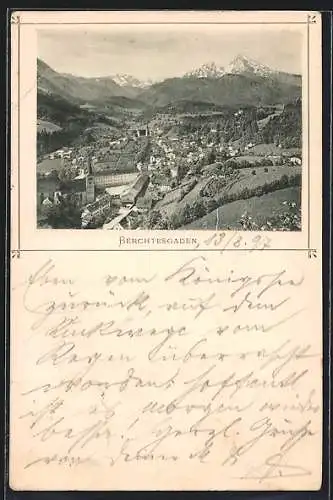 BERCHTESGADEN, 13/8.97
Eben vom Königssee
zurück, auf dem
Rückwege vom
Regen überrascht
worden. hoffentl.
ist es morgen wieder
besser! Herzl. Grüße
von